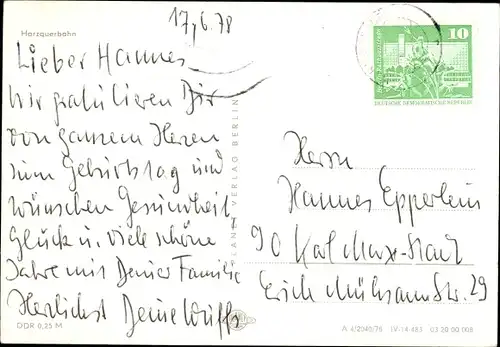 17.6.78
Harzquerbahn
Lieber Hannes
Wir gratulieren Dir
von ganzem Herzen
zum Geburtstag und
wünschen Gesundheit,
Glück u. viele schöne
Jahre mit Deiner Familie
Herzlichst Deine
DDR 0,25 M
PLANET-VERLAG BERLIN
10
DEUTSCHE DEMOKRATISCHE REPUBLIK
Herrn
Hannes Epperlein
90 Karl-Marx-Stadt
Erich Mühsam Str. 29
A 4/2040/76 IV-14-483 03 20 00 008